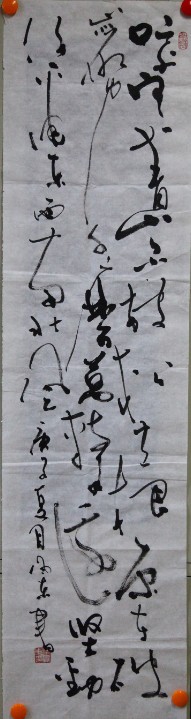 咬定青山不放松立根原在破
岩中千磨萬擊還堅勁
任尔东西南北风庚子夏月